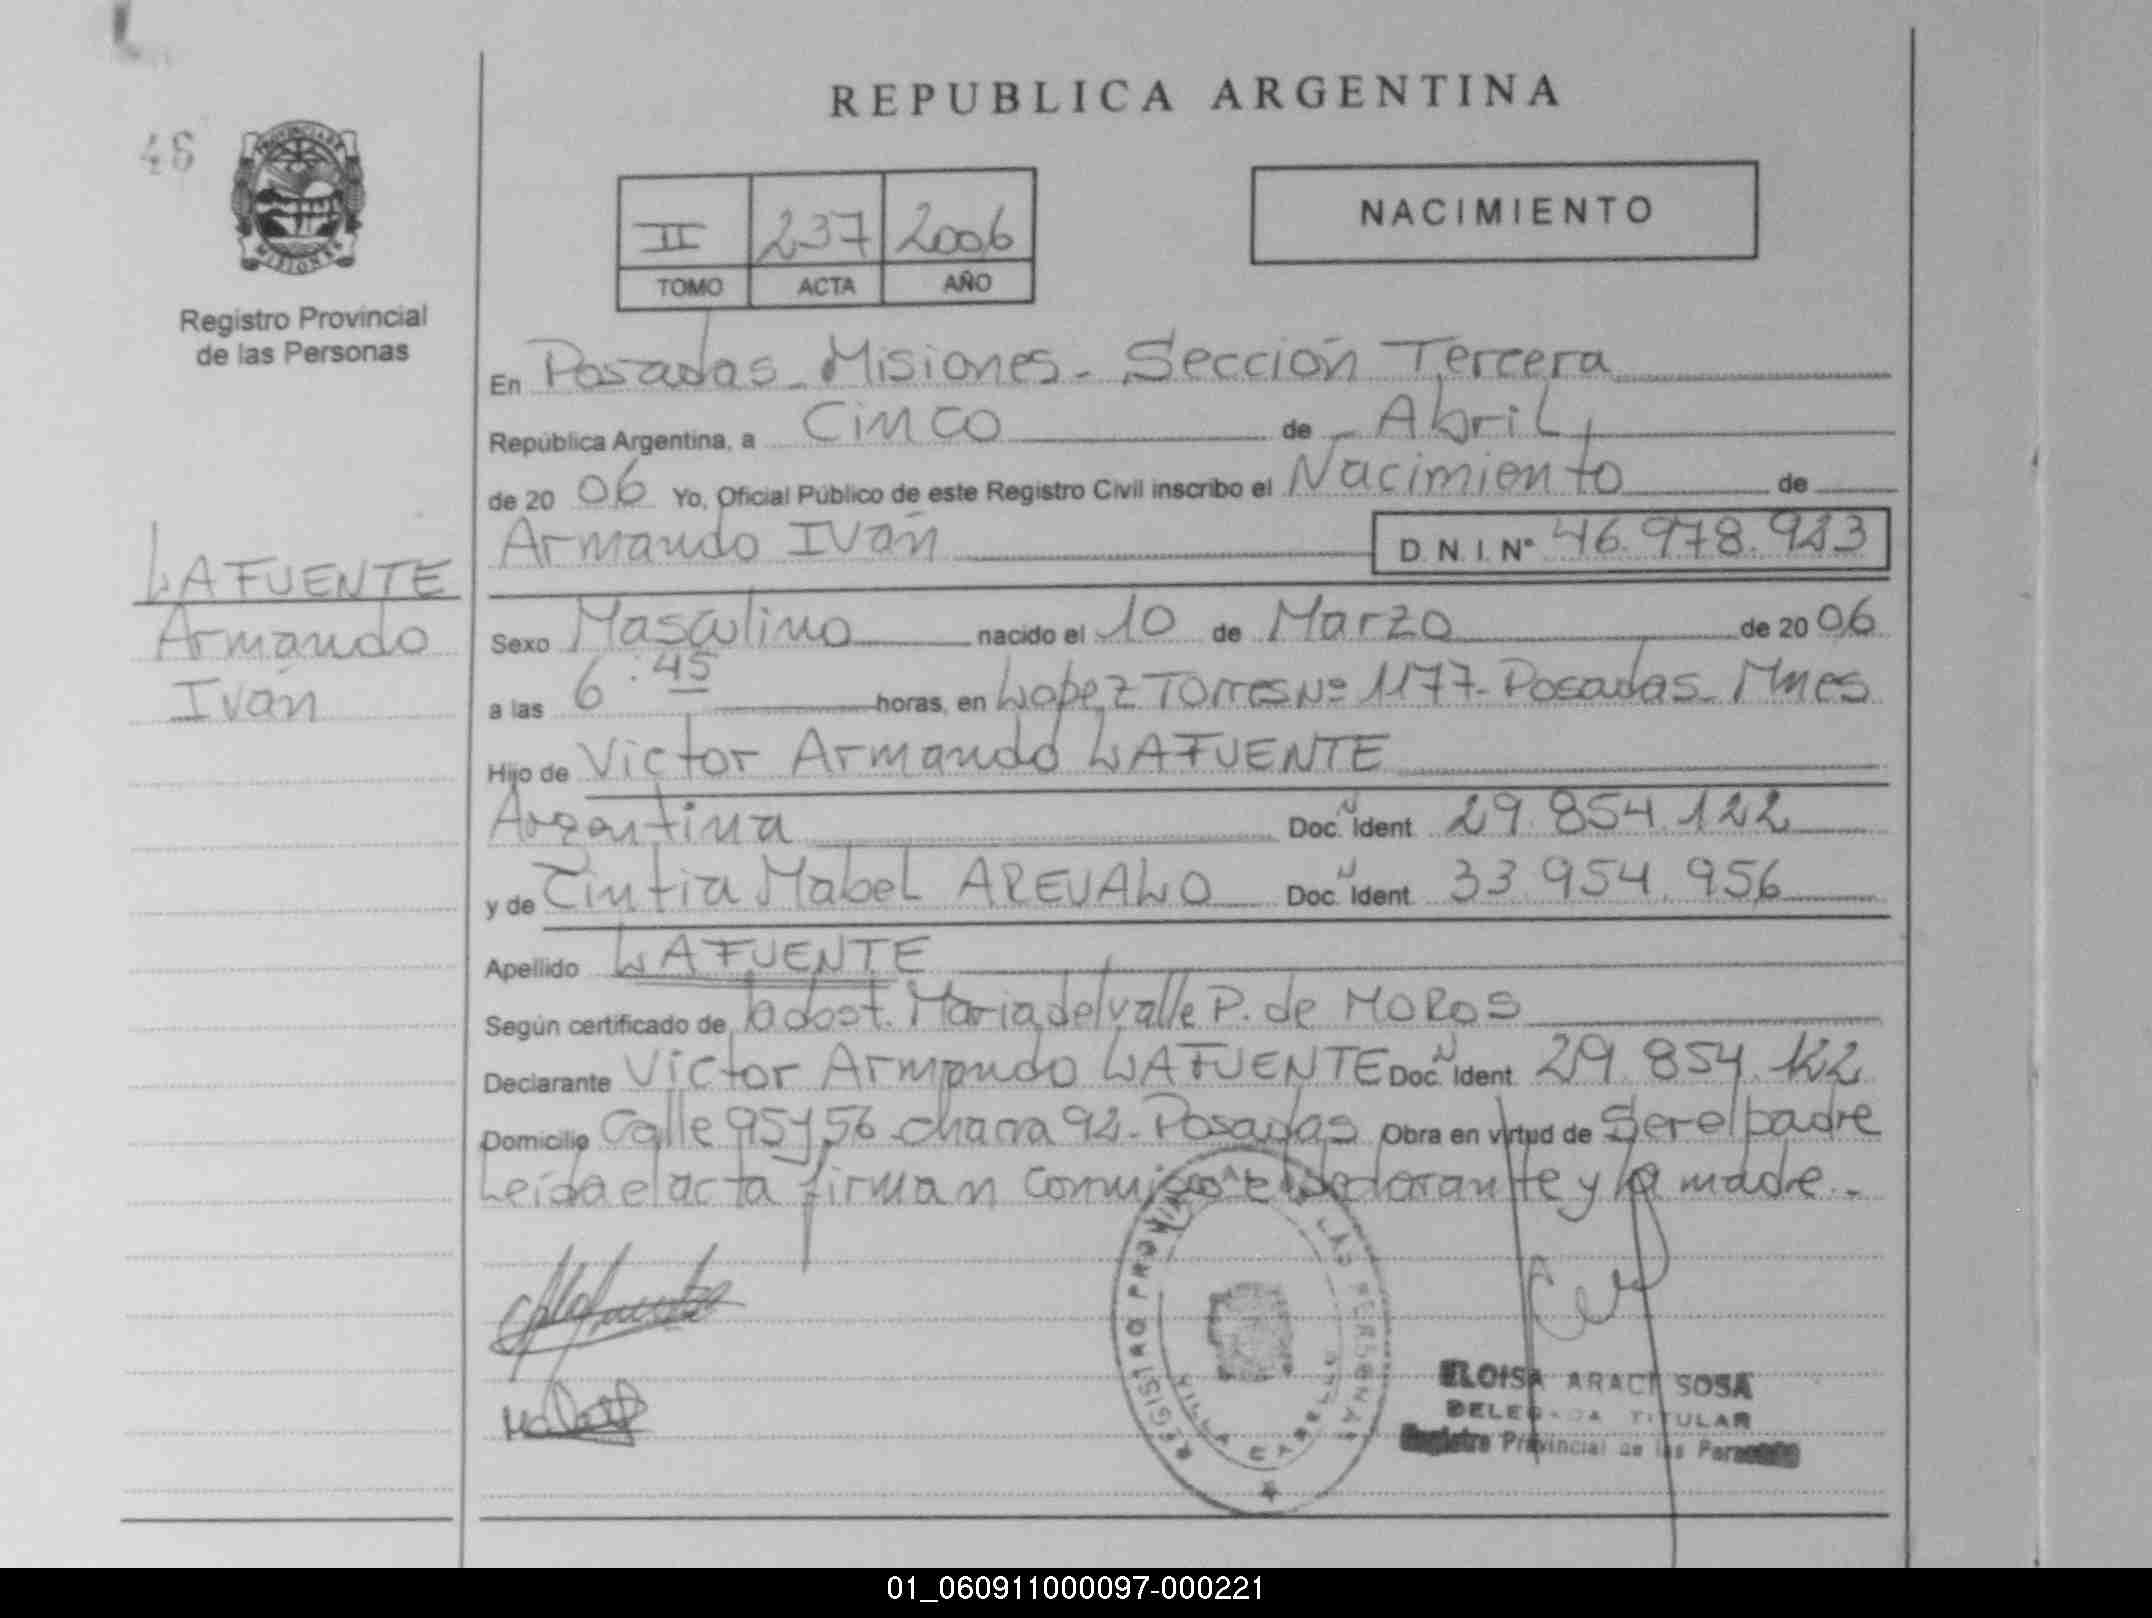 REPUBLICA ARGENTINA
46
PROVINCIA DE MISIONES
Registro Provincial
de las Personas
NACIMIENTO
II 237 2006
TOMO ACTA AÑO
En Posadas - Misiones - Sección Tercera
República Argentina, a Cinco de Abril,
de 20 06 Yo, Oficial Público de este Registro Civil inscribo el Nacimiento de
Armando Iván D.N.I.Nº 46.978.913
LAFUENTE
Armando
Iván
Sexo Masculino nacido el 10 de Marzo de 20 06
a las 6:45 horas, en Lopez Torres Nº 1177 - Posadas - Mnes
Hijo de Victor Armando LAFUENTE
Argentina Doc. Ident 29.854.122
y de Cintia Mabel AREVALO Doc. Ident 33.954.956
Apellido LAFUENTE
Según certificado de la obst. Maria del valle P. de MOROS
Declarante Victor Armando LAFUENTE Doc. Ident. 29.854.122
Domicilio Calle 95 y 56 chacra 92 - Posadas Obra en virtud de Ser el padre
Leída el acta firman conmigo el declarante y la madre. -
REGISTRO PROVINCIAL DE LAS PERSONAS
VILLA CABELLO
ELOISA ARACI SOSA
DELEGADA TITULAR
Registro Provincial de las Personas
01_060911000097-000221